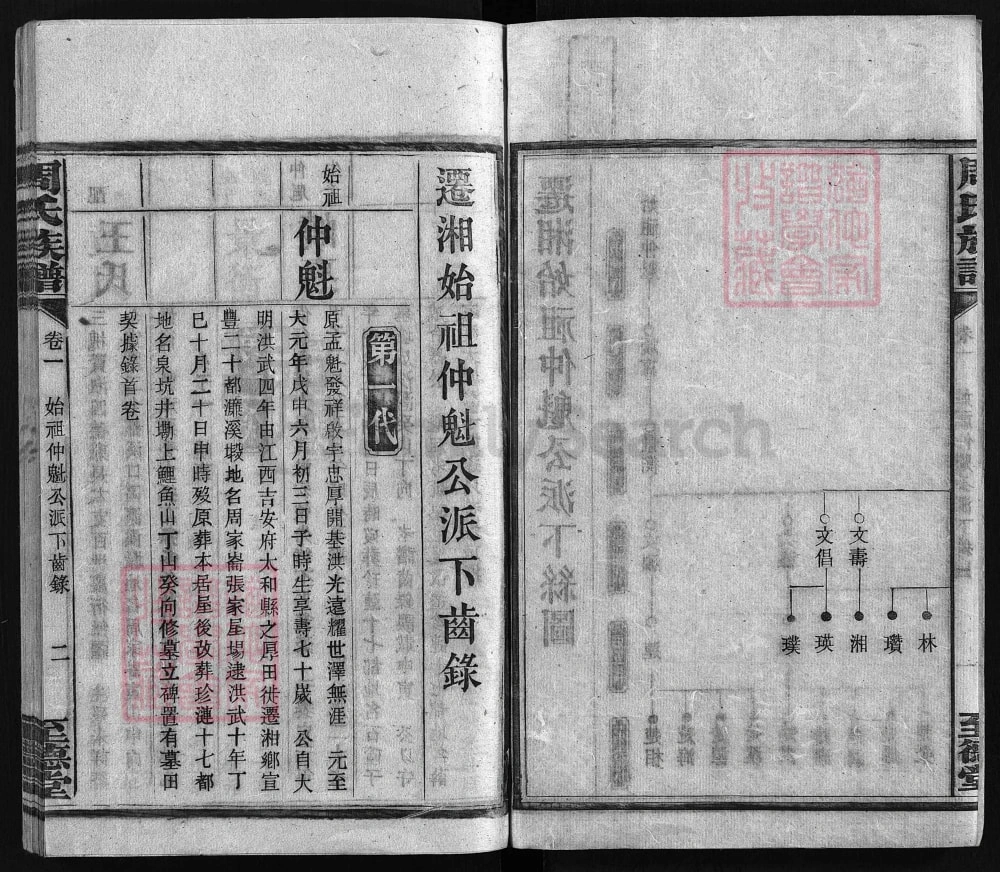 周氏族譜
至德堂
文壽
文倡
林
瓚
湘
瑛
璞
遷湘始祖仲魁公派下齒錄
第一代
始祖
仲魁
原孟魁發祥啟宇忠厚開基洪光遠耀世澤無涯 元至
大元年戊申六月初三日子時生享壽七十歲 公自大
明洪武四年由江西吉安府太和縣之厚田徙遷湘鄉宣
豐二十都濂溪塅地名周家崙張家屋場逮洪武十年丁
巳十月二十日申時歿原葬本居屋後改葬珍漣十七都
地名泉坑井塝上鯉魚山丁山癸向修墓立碑置有墓田
契據錄首卷
周氏族譜
卷一
始祖仲魁公派下齒錄
二
至德堂